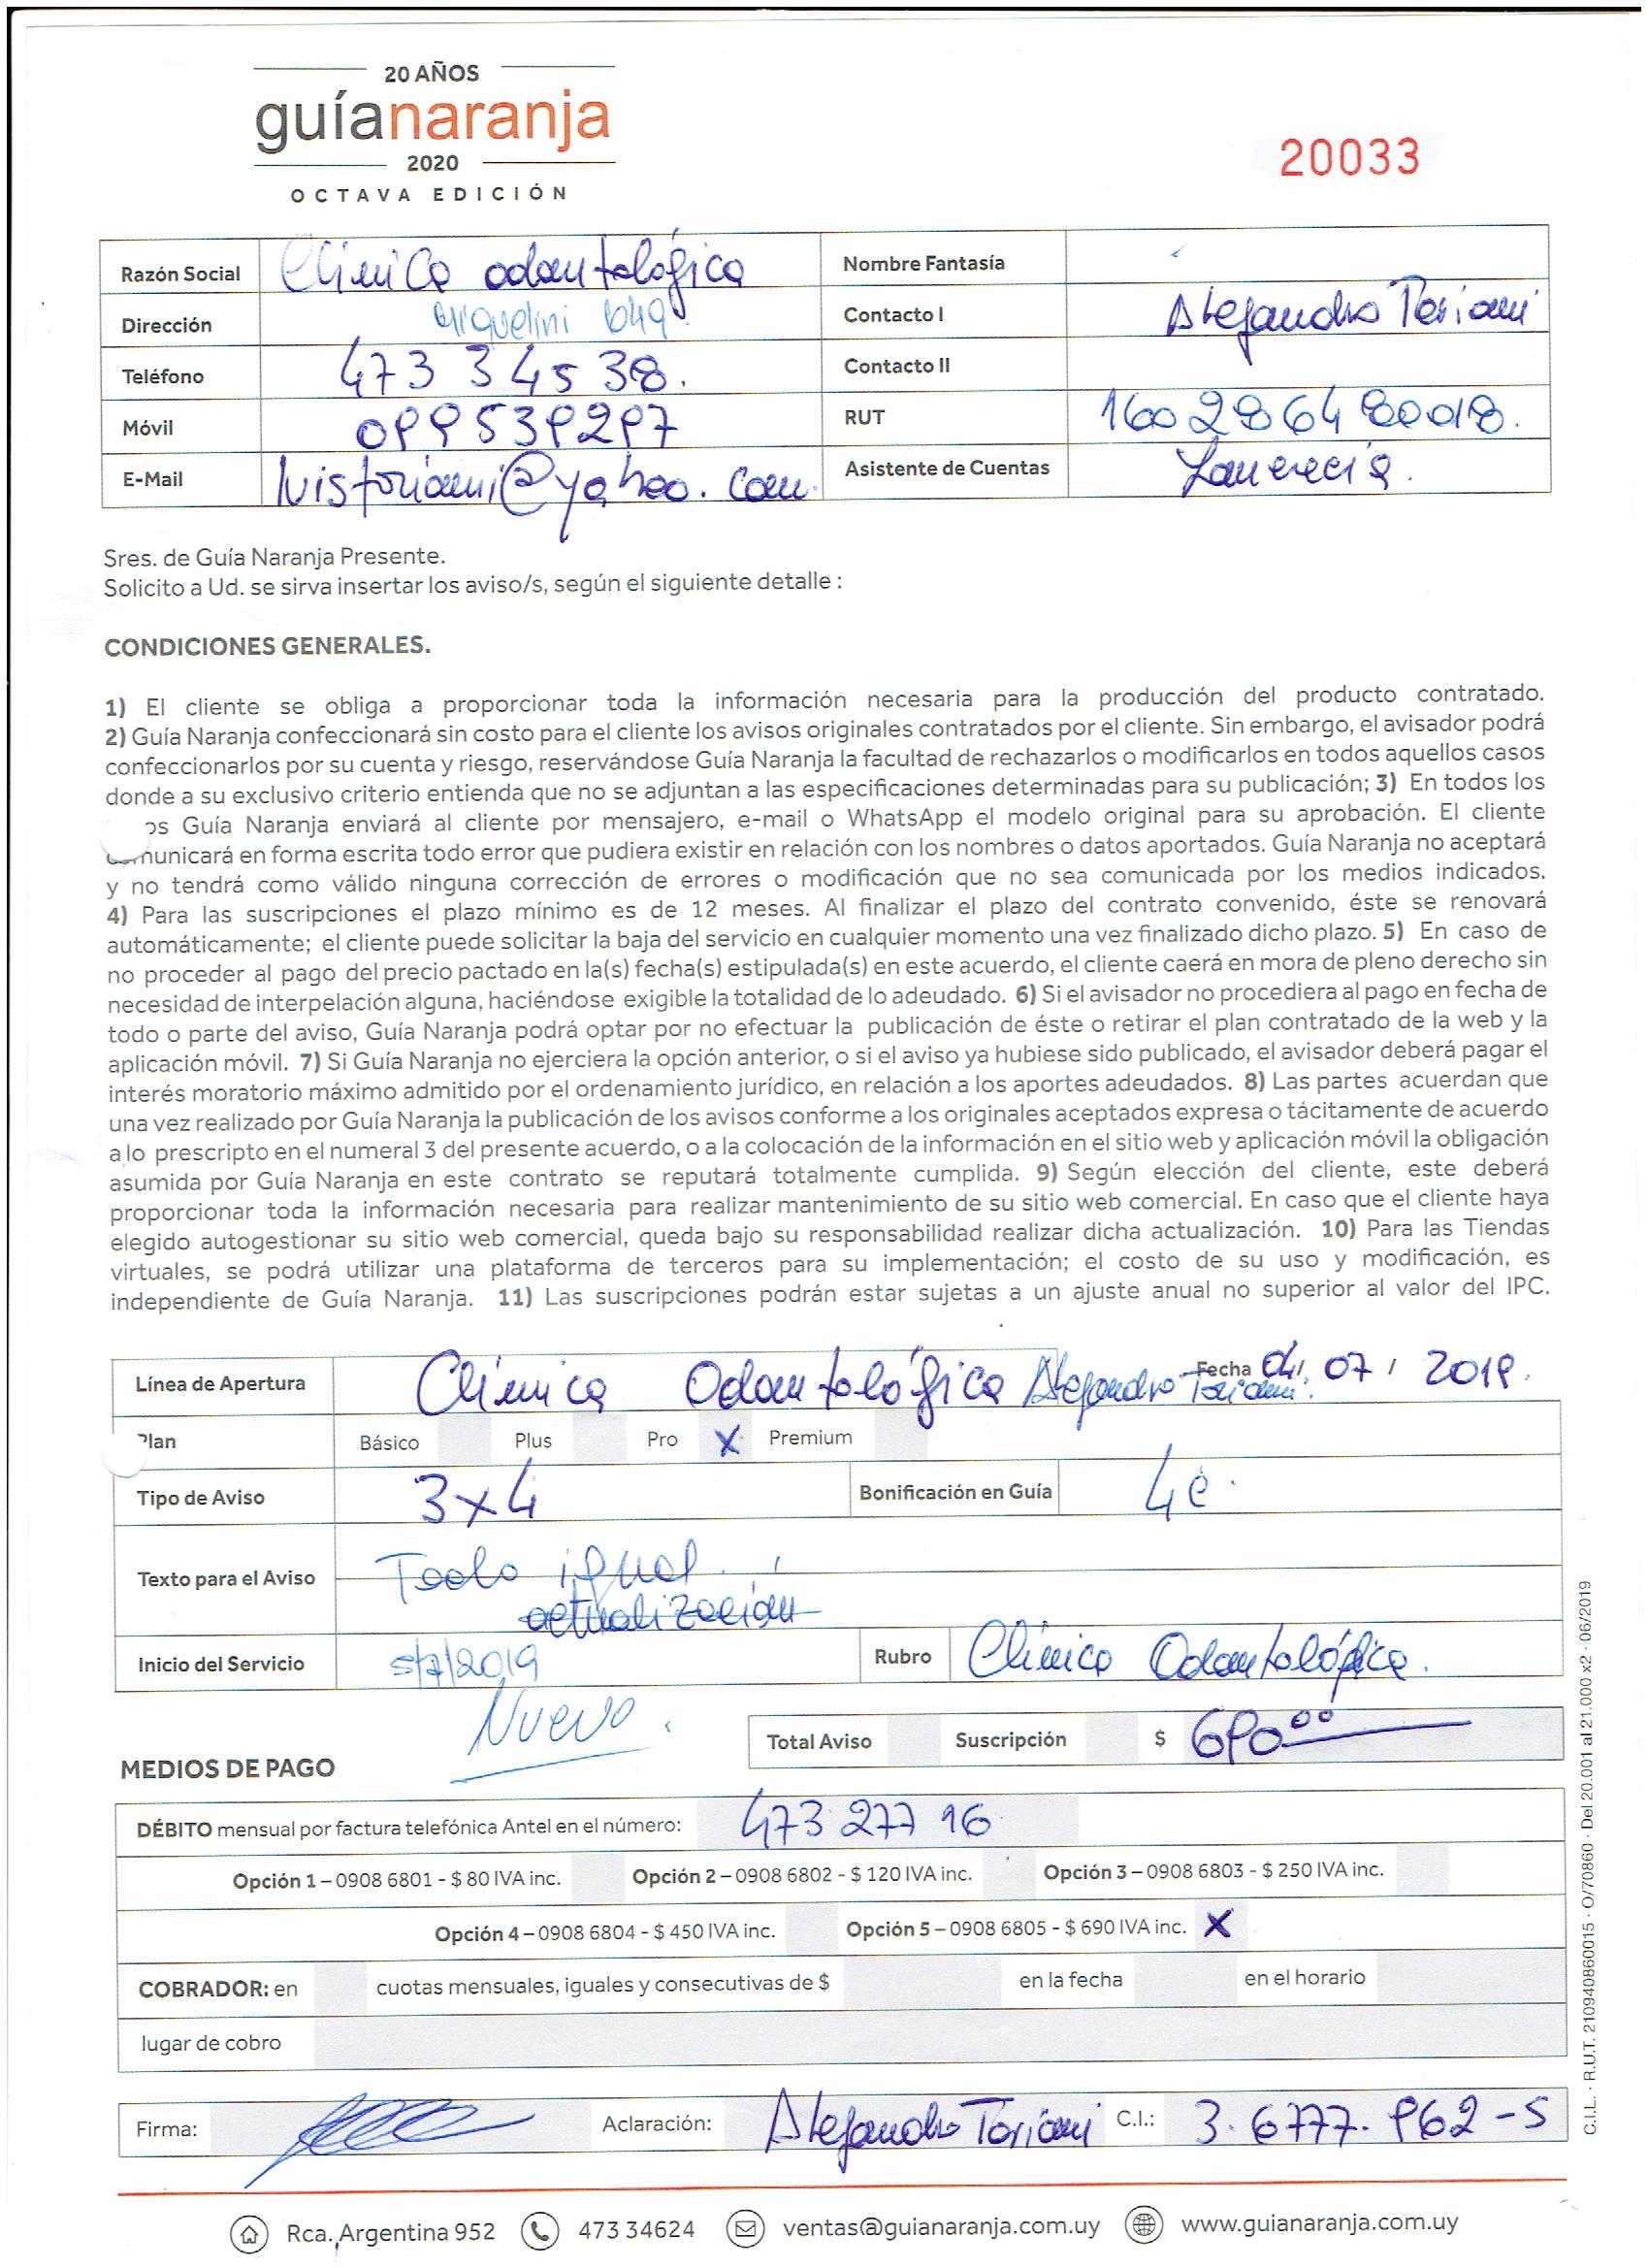 20 AÑOS
guíanaranja
2020
OCTAVA EDICIÓN
20033
Razón Social Clinica odontológica Nombre Fantasía
Dirección 649 Contacto I Alejandro Toriani
Teléfono 473 34538. Contacto II
Móvil 099539297 RUT 160286480018.
E-Mail luistoriani@yahoo.com. Asistente de Cuentas
Sres. de Guía Naranja Presente.
Solicito a Ud. se sirva insertar los aviso/s, según el siguiente detalle :
CONDICIONES GENERALES.
1) El cliente se obliga a proporcionar toda la información necesaria para la producción del producto contratado.
2) Guía Naranja confeccionará sin costo para el cliente los avisos originales contratados por el cliente. Sin embargo, el avisador podrá
confeccionarlos por su cuenta y riesgo, reservándose Guía Naranja la facultad de rechazarlos o modificarlos en todos aquellos casos
donde a su exclusivo criterio entienda que no se adjuntan a las especificaciones determinadas para su publicación; 3) En todos los
os Guía Naranja enviará al cliente por mensajero, e-mail o WhatsApp el modelo original para su aprobación. El cliente
comunicará en forma escrita todo error que pudiera existir en relación con los nombres o datos aportados. Guía Naranja no aceptará
y no tendrá como válido ninguna corrección de errores o modificación que no sea comunicada por los medios indicados.
4) Para las suscripciones el plazo mínimo es de 12 meses. Al finalizar el plazo del contrato convenido, éste se renovará
automáticamente; el cliente puede solicitar la baja del servicio en cualquier momento una vez finalizado dicho plazo. 5) En caso de
no proceder al pago del precio pactado en la(s) fecha(s) estipulada(s) en este acuerdo, el cliente caerá en mora de pleno derecho sin
necesidad de interpelación alguna, haciéndose exigible la totalidad de lo adeudado. 6) Si el avisador no procediera al pago en fecha de
todo o parte del aviso, Guía Naranja podrá optar por no efectuar la publicación de éste o retirar el plan contratado de la web y la
aplicación móvil. 7) Si Guía Naranja no ejerciera la opción anterior, o si el aviso ya hubiese sido publicado, el avisador deberá pagar el
interés moratorio máximo admitido por el ordenamiento jurídico, en relación a los aportes adeudados. 8) Las partes acuerdan que
una vez realizado por Guía Naranja la publicación de los avisos conforme a los originales aceptados expresa o tácitamente de acuerdo
a lo prescripto en el numeral 3 del presente acuerdo, o a la colocación de la información en el sitio web y aplicación móvil la obligación
asumida por Guía Naranja en este contrato se reputará totalmente cumplida. 9) Según elección del cliente, este deberá
proporcionar toda la información necesaria para realizar mantenimiento de su sitio web comercial. En caso que el cliente haya
elegido autogestionar su sitio web comercial, queda bajo su responsabilidad realizar dicha actualización. 10) Para las Tiendas
virtuales, se podrá utilizar una plataforma de terceros para su implementación; el costo de su uso y modificación, es
independiente de Guía Naranja. 11) Las suscripciones podrán estar sujetas a un ajuste anual no superior al valor del IPC.
Línea de Apertura Clínica Odontológica Alejandro Toriani. Fecha 04/ 07 / 2019.
Plan Básico Plus Pro X Premium
Tipo de Aviso 3x4 Bonificación en Guía 4c.
Texto para el Aviso Todo igual.
actualización
Inicio del Servicio 5/7/2019 Rubro Clínica Odontológica.
Nuevo.
Total Aviso Suscripción $ 690 00
MEDIOS DE PAGO
DÉBITO mensual por factura telefónica Antel en el número: 473 277 16
Opción 1 – 0908 6801 - $ 80 IVA inc. Opción 2 – 0908 6802 - $ 120 IVA inc. Opción 3 – 0908 6803 - $ 250 IVA inc.
Opción 4 – 0908 6804 - $ 450 IVA inc. Opción 5 – 0908 6805 - $ 690 IVA inc. X
COBRADOR: en cuotas mensuales, iguales y consecutivas de $ en la fecha en el horario
lugar de cobro
Firma: Aclaración: Alejandro Toriani C.I.: 3.6777.962-5
Rca. Argentina 952 473 34624 ventas@guianaranja.com.uy www.guianaranja.com.uy
C.I.L. · R.U.T. 210940860015 · O/70860 · Del 20.001 al 21.000 x2 · 06/2019